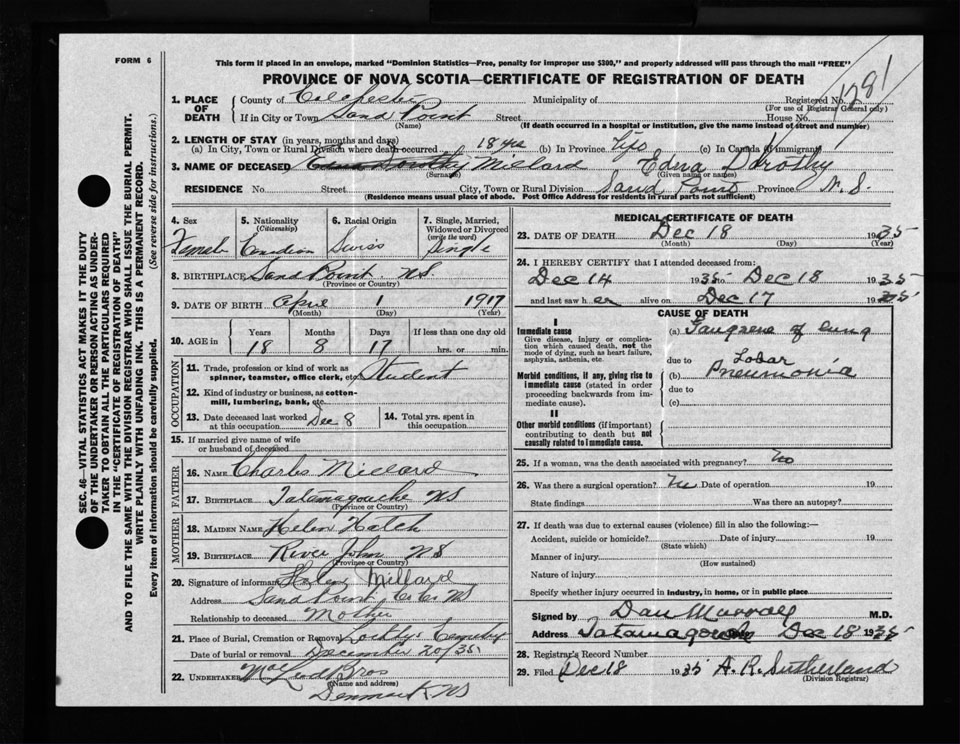 FORM 6
This form if placed in an envelope, marked "Dominion Statistics—Free, penalty for improper use $300," and properly addressed will pass through the mail "FREE"
PROVINCE OF NOVA SCOTIA—CERTIFICATE OF REGISTRATION OF DEATH
SEC. 46—VITAL STATISTICS ACT MAKES IT THE DUTY
OF THE UNDERTAKER OR PERSON ACTING AS UNDER-
TAKER TO OBTAIN ALL THE PARTICULARS REQUIRED
IN THE "CERTIFICATE OF REGISTRATION OF DEATH"
AND TO FILE THE SAME WITH THE DIVISION REGISTRAR WHO SHALL ISSUE THE BURIAL PERMIT.
WRITE PLAINLY WITH UNFADING INK. THIS IS A PERMANENT RECORD.
Every item of information should be carefully supplied. (See reverse side for instructions.)
1. PLACE OF DEATH County of Colchester Municipality of Registered No. 1781
(For use of Registrar General only)
If in City or Town Sand Point Street House No.
(Name) (If death occurred in a hospital or institution, give the name instead of street and number)
2. LENGTH OF STAY (in years, months and days)
(a) In City, Town or Rural Division where death occurred 18 yrs (b) In Province Life (c) In Canada (if immigrant)
3. NAME OF DECEASED Edna Dorothy Millard Edna Dorothy
(Surname) (Given name or names)
RESIDENCE No. Street City, Town or Rural Division Sand Point Province N.S.
(Residence means usual place of abode. Post Office Address for residents in rural parts not sufficient)
4. Sex Female
5. Nationality (Citizenship) Canadian
6. Racial Origin Swiss
7. Single, Married, Widowed or Divorced (write the word) Single
8. BIRTHPLACE Sand Point. N.S.
(Province or Country)
9. DATE OF BIRTH April 1 1917
(Month) (Day) (Year)
10. AGE in Years 18 Months 8 Days 17 If less than one day old hrs. or min.
OCCUPATION
11. Trade, profession or kind of work as spinner, teamster, office clerk, etc. Student
12. Kind of industry or business, as cotton-mill, lumbering, bank, etc.
13. Date deceased last worked at this occupation Dec 8
14. Total yrs. spent in this occupation
15. If married give name of wife or husband of deceased
FATHER
16. NAME Charles Millard
17. BIRTHPLACE Tatamagouche NS
(Province or Country)
MOTHER
18. MAIDEN NAME Helen
19. BIRTHPLACE River John NS
(Province or Country)
20. Signature of informant Helen Millard
Address Sand Point Co NS
Relationship to deceased Mother
21. Place of Burial, Cremation or Removal Cemetery
Date of burial or removal December 20/35
22. UNDERTAKER Bros
(Name and address)
Denmark NS
MEDICAL CERTIFICATE OF DEATH
23. DATE OF DEATH Dec 18 1935
(Month) (Day) (Year)
24. I HEREBY CERTIFY that I attended deceased from:
Dec 14 1935 to Dec 18 1935
and last saw her alive on Dec 17 1935
CAUSE OF DEATH
I
Immediate cause
Give disease, injury or complication which caused death, not the mode of dying, such as heart failure, asphyxia, asthenia, etc.
(a) Gangrene of lung
due to Lobar
(b) Pneumonia
Morbid conditions, if any, giving rise to immediate cause (stated in order proceeding backwards from immediate cause).
due to
(c)
II
Other morbid conditions (if important) contributing to death but not causally related to immediate cause.
25. If a woman, was the death associated with pregnancy? no
26. Was there a surgical operation? no Date of operation 19
State findings Was there an autopsy?
27. If death was due to external causes (violence) fill in also the following:—
Accident, suicide or homicide? Date of injury 19
(State which)
Manner of injury
(How sustained)
Nature of injury
Specify whether injury occurred in industry, in home, or in public place
Signed by Dan Murray M.D.
Address Tatamagouche Dec 18 1935
28. Registrar's Record Number
29. Filed Dec 18 1935 A. R. Sutherland
(Division Registrar)